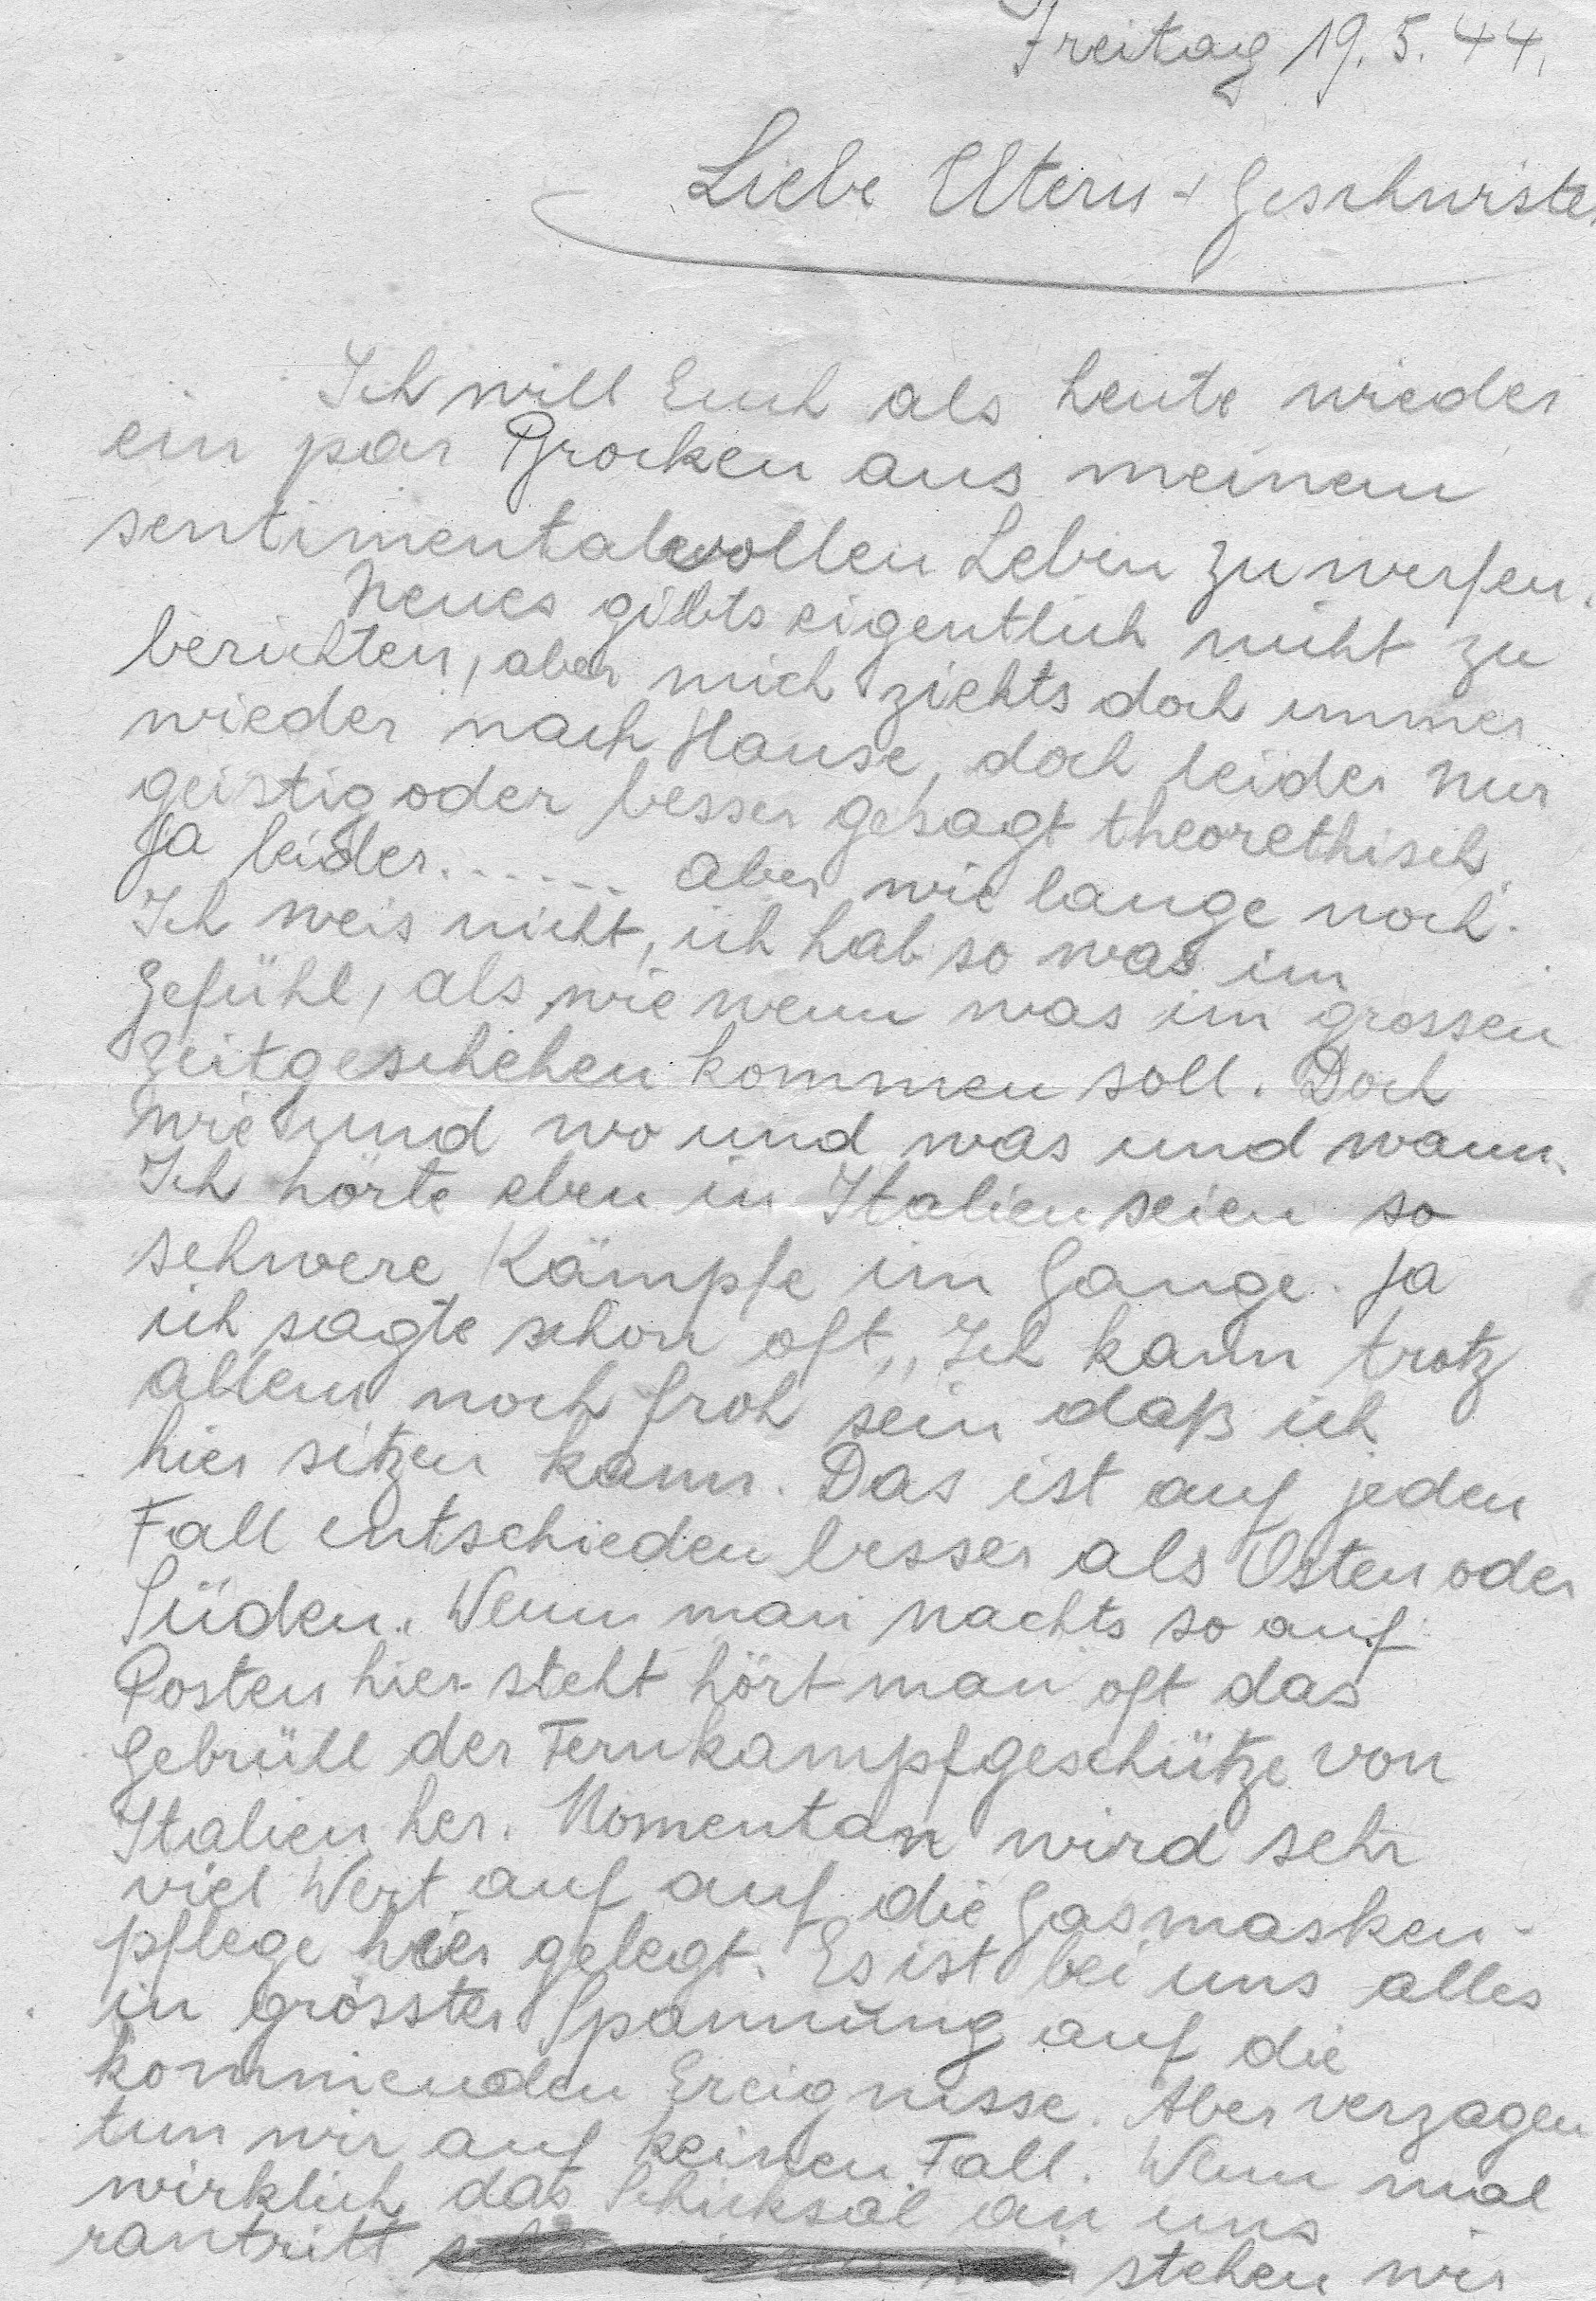 Freitag 19.5.44.
Liebe Eltern + Geschwister
Ich will Euch als heute wieder
ein par Brocken aus meinem
sentimentalvollen Leben zuwerfen.
Neues gibts eigentlich nicht zu
berichten, aber mich ziehts doch immer
wieder nach Hause, doch leider nur
geistig oder besser gesagt theorethisch.
Ja leider...... aber wie lange noch.
Ich weis nicht, ich hab so was im
Gefühl, als wie wenn was im grossen
Zeitgeschehen kommen soll. Doch
wie und wo und was und wann.
Ich hörte eben in Italien seien so
schwere Kämpfe im Gange. Ja
ich sagte schon oft „Ich kann trotz
allem noch froh sein daß ich
hier sitzen kann. Das ist auf jeden
Fall entschieden besser als Osten oder
Süden. Wenn man nachts so auf
Posten hier steht hört man oft das
Gebrüll der Fernkampfgeschütze von
Italien her. Momentan wird sehr
viel Wert auf auf die Gasmasken-
pflege hier gelegt. Es ist bei uns alles
in grösster Spannung auf die
kommenden Ereignisse. Aber verzagen
tun wir auf keinen Fall. Wenn mal
wirklich das Schicksal an uns
rantritt stehen wir